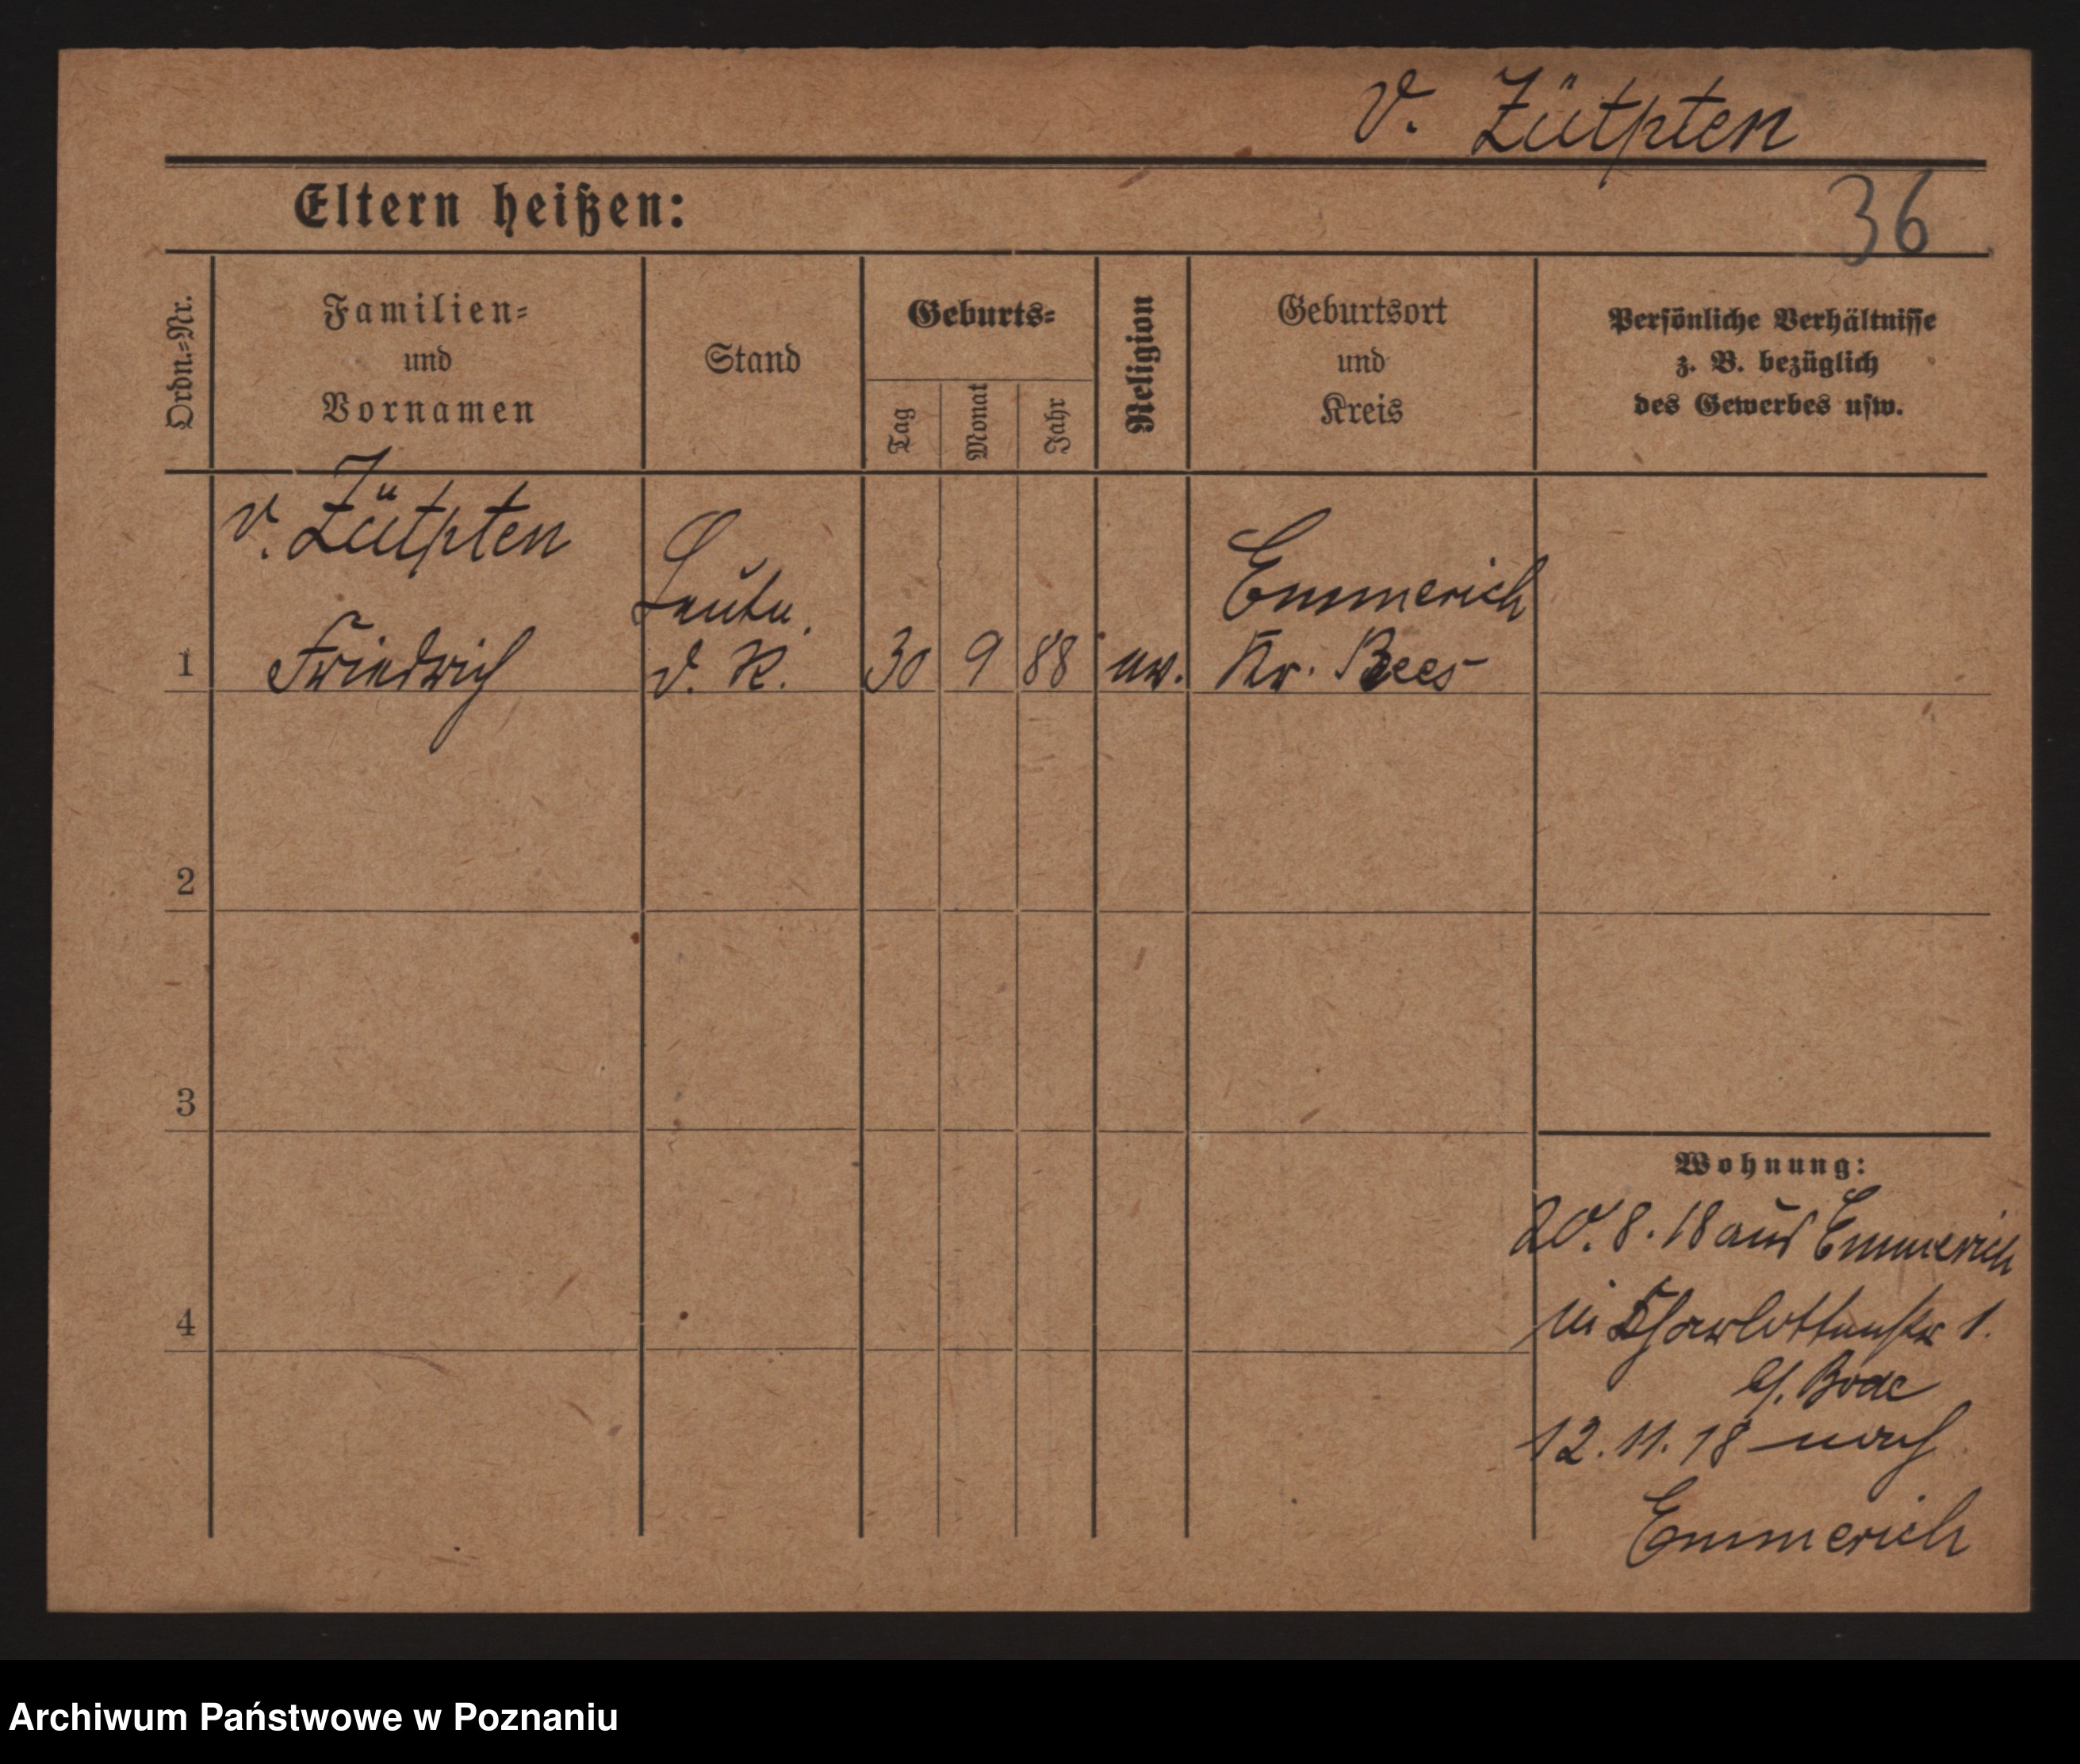 v. Zütpten
Eltern heißen:
36
Ordn.-Nr.
Familien-
und
Vornamen
Stand
Geburts-
Tag
Monat
Jahr
Religion
Geburtsort
und
Kreis
Persönliche Verhältnisse
z. B. bezüglich
des Gewerbes usw.
v. Zütpten
Friedrich
Leutn.
d. R.
30
9
88
Emmerich
Kr. Rees
1
2
3
4
Wohnung:
20.8.18 aus Emmerich
in Charlottenstr 1.
b/. Bode
12.11.18 nach
Emmerich
Archiwum Państwowe w Poznaniu